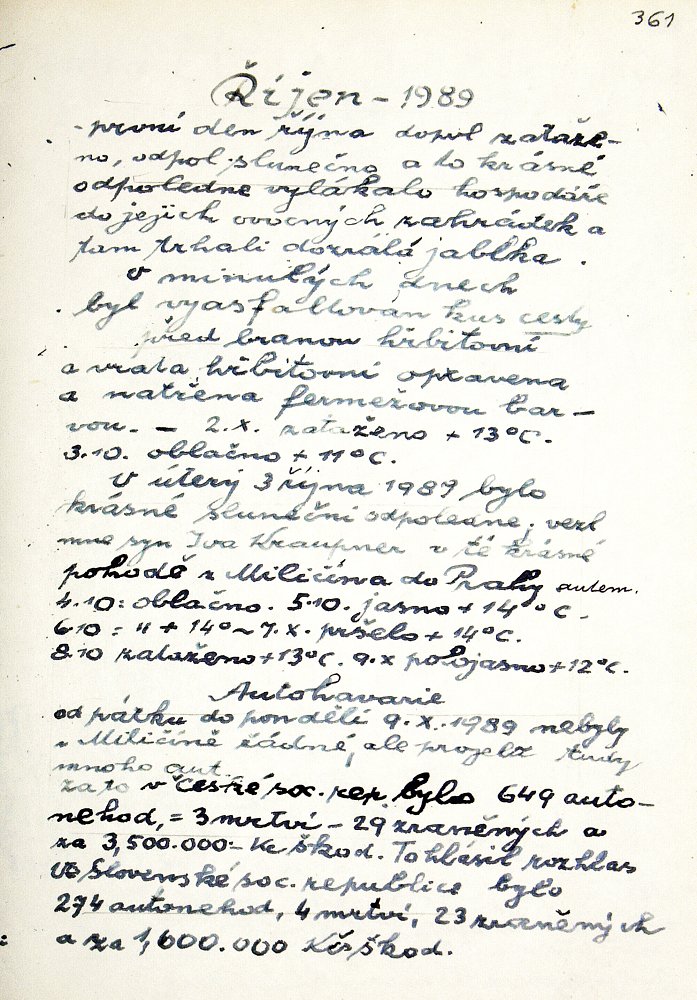 361
Říjen - 1989
- první den října dopol zataže-
no, odpol. slunečno a to krásné
odpoledne vylákalo hospodáře
do jejich ovocných zahrádek a
tam trhali dozrálá jablka.
V minulých dnech
byl vyasfaltován kus cesty
před branou hřbitovní
a vrata hřbitovní opravena
a natřena fermežovou bar-
vou. - 2.X. zataženo + 13°C.
3.10. oblačno + 11°C.
V úterý 3 října 1989 bylo
krásné sluneční odpoledne; vezl
mne syn Iva Kraupner v té krásné
pohodě z Miličína do Prahy autem.
4.10: oblačno. 5.10. jasno + 14°C.
6.10 = " + 14° ~ 7.X. pršelo + 14°C.
8.10 zataženo + 13°C. 9.X polojasno + 12°C.
Autohavarie
od pátku do pondělí 9.X.1989 nebyly
v Miličíně žádné, ale projelx tudy
mnoho aut.
zato v České soc. rep. bylo 649 auto-
nehod, = 3 mrtví - 29 zraněných a
za 3,500.000:- Kč škod. To hlásil rozhlas
Ve Slovenské soc. republice bylo
274 autonehod, 4 mrtví, 23 zraněných
a za 1,600.000 Kčs škod.